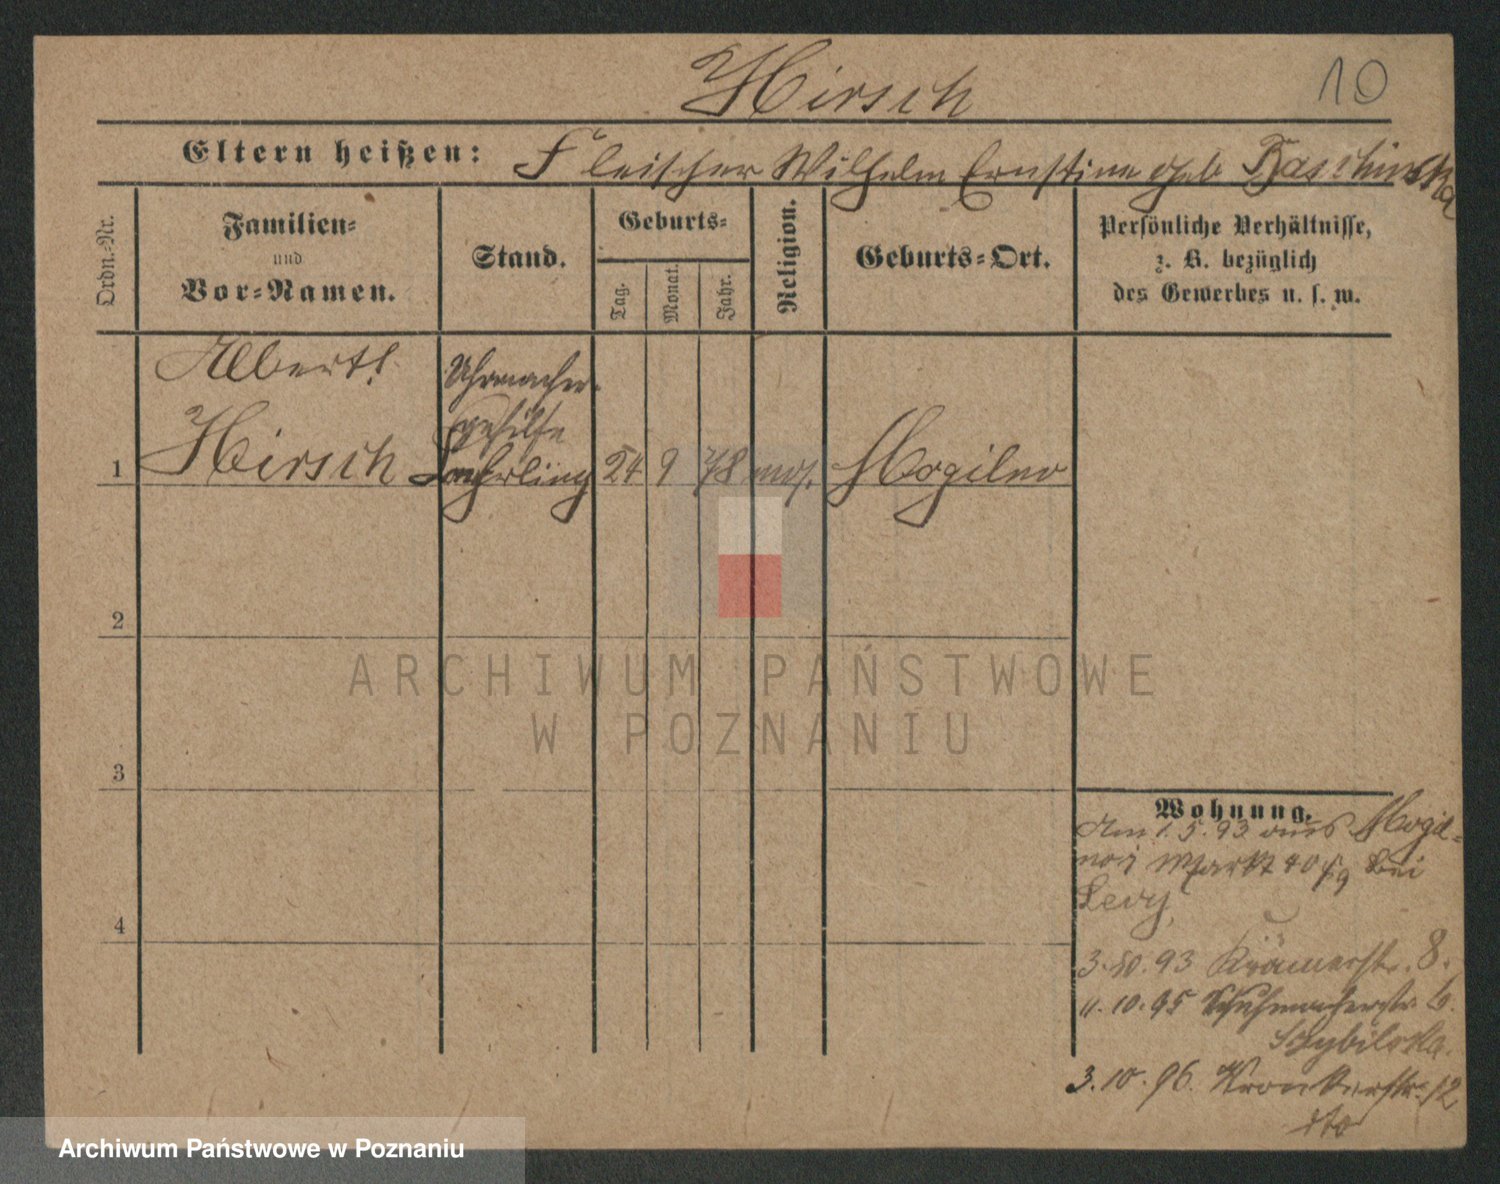 Hirsch
10
Eltern heißen: Fleischer Wilhelm Ernstine geb
Ordn.-Nr.
Familien-
und
Vor-Namen.
Stand.
Geburts-
Tag.
Monat.
Jahr.
Religion.
Geburts-Ort.
Persönliche Verhältnisse,
z. B. bezüglich
des Gewerbes u. s. w.
Albert
Uhrmacher-
gehilfe
1 Hirsch 24 9 78 mos. Mogilno
2
3
4
ARCHIWUM PAŃSTWOWE
W POZNANIU
Wohnung.
Am 1. 5. 93 aus Mogil-
no Markt 40 bei
Levy,
3. 10. 93 Krämerstr. 8.
11. 10. 95 Schuhmacherstr. 6.
3. 10. 96. Wronkerstr. 12
dto
Archiwum Państwowe w Poznaniu